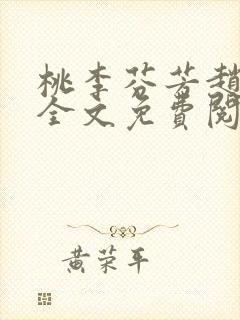 桃李芬芳趙
全文免費閱
黃荣平